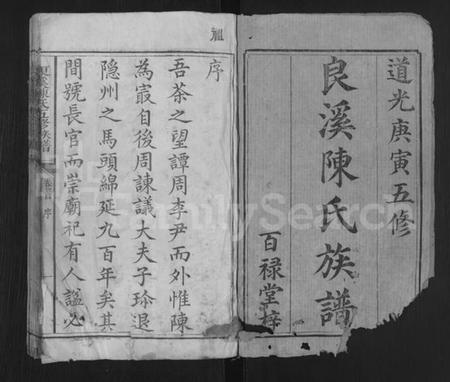 道光庚寅五修
良溪陳氏族譜
百禄堂梓
序
吾茶之望譚周李尹而外惟陳
為宸自後周諫議大夫子珍退
隐州之馬頭綿延九百年矣其
間號長官而崇廟祀有人謚必
卷首 序
FamilySearch